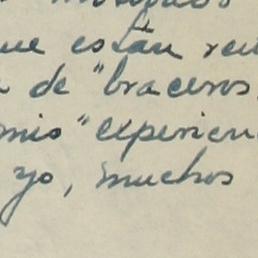 que están reu
de "braceros
mio "experien
yo, muchos